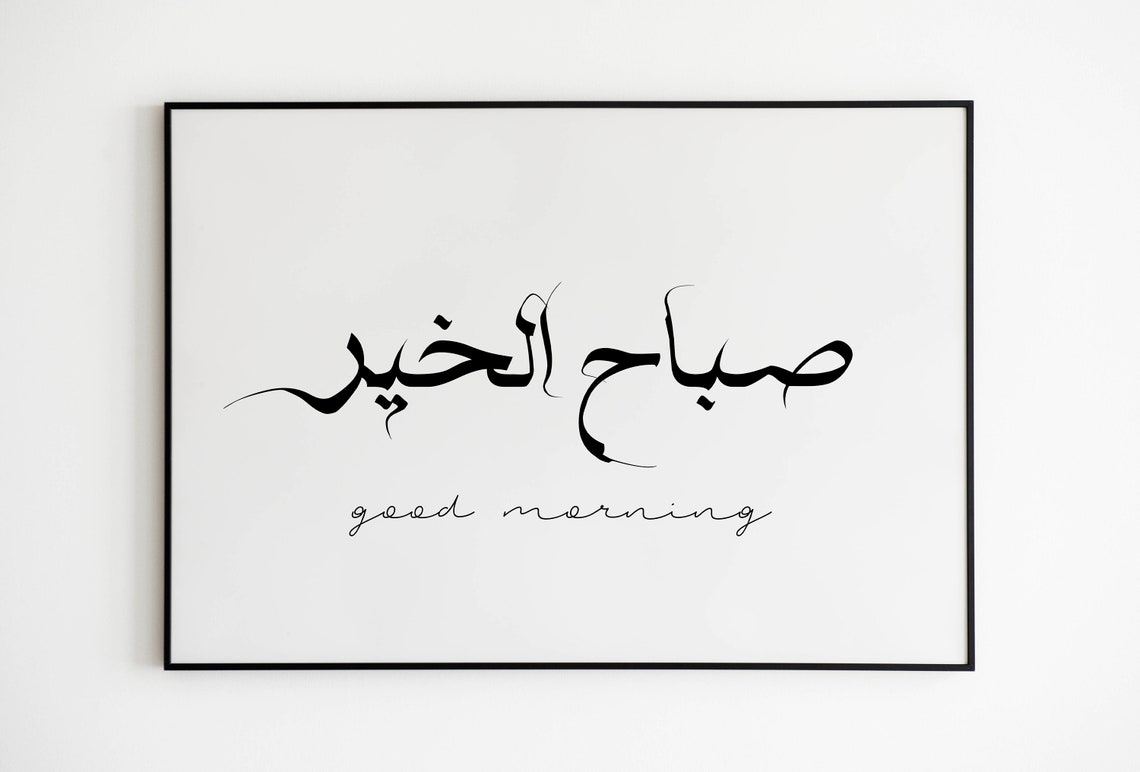 صباح الخير
good morning